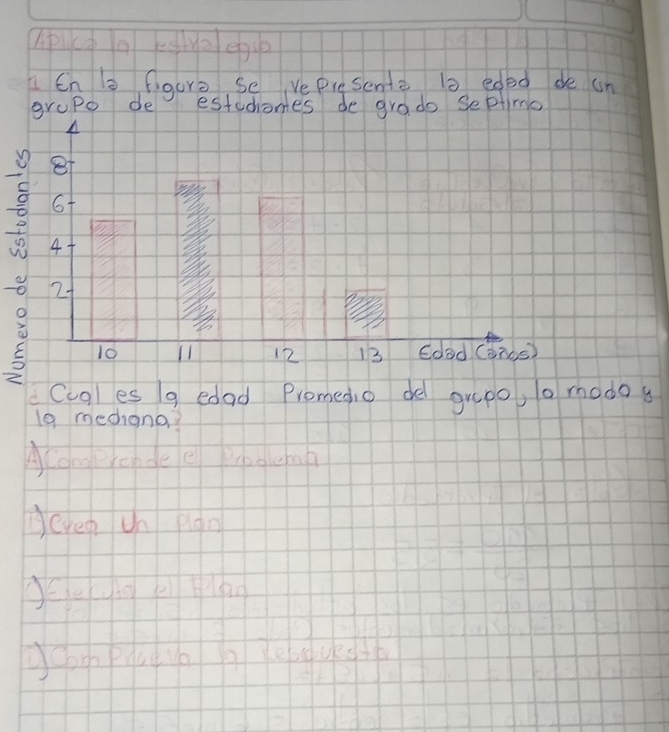 Aplica la estrategia
1 En la figura se representa la edad de un
grupo de estudiantes de grado septimo
Numero de Estudiantes
8
6
4
2
10 11 12 13 Edad (años)
¿Cual es la edad Promedio del grupo, la moda y
la mediana?
A) Comprende el Problema
) Crea un Plan
) Ejecuta el Plan
) Comprueva la respuesta